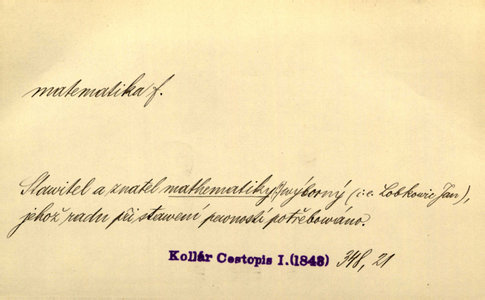 matematika f.
Stawitel a znatel mathematiky wýborný (i.e. Lobkowic Jan),
jehož radu při stawení pewností potřebowano.
Kollár Cestopis I.(1843) 348, 21